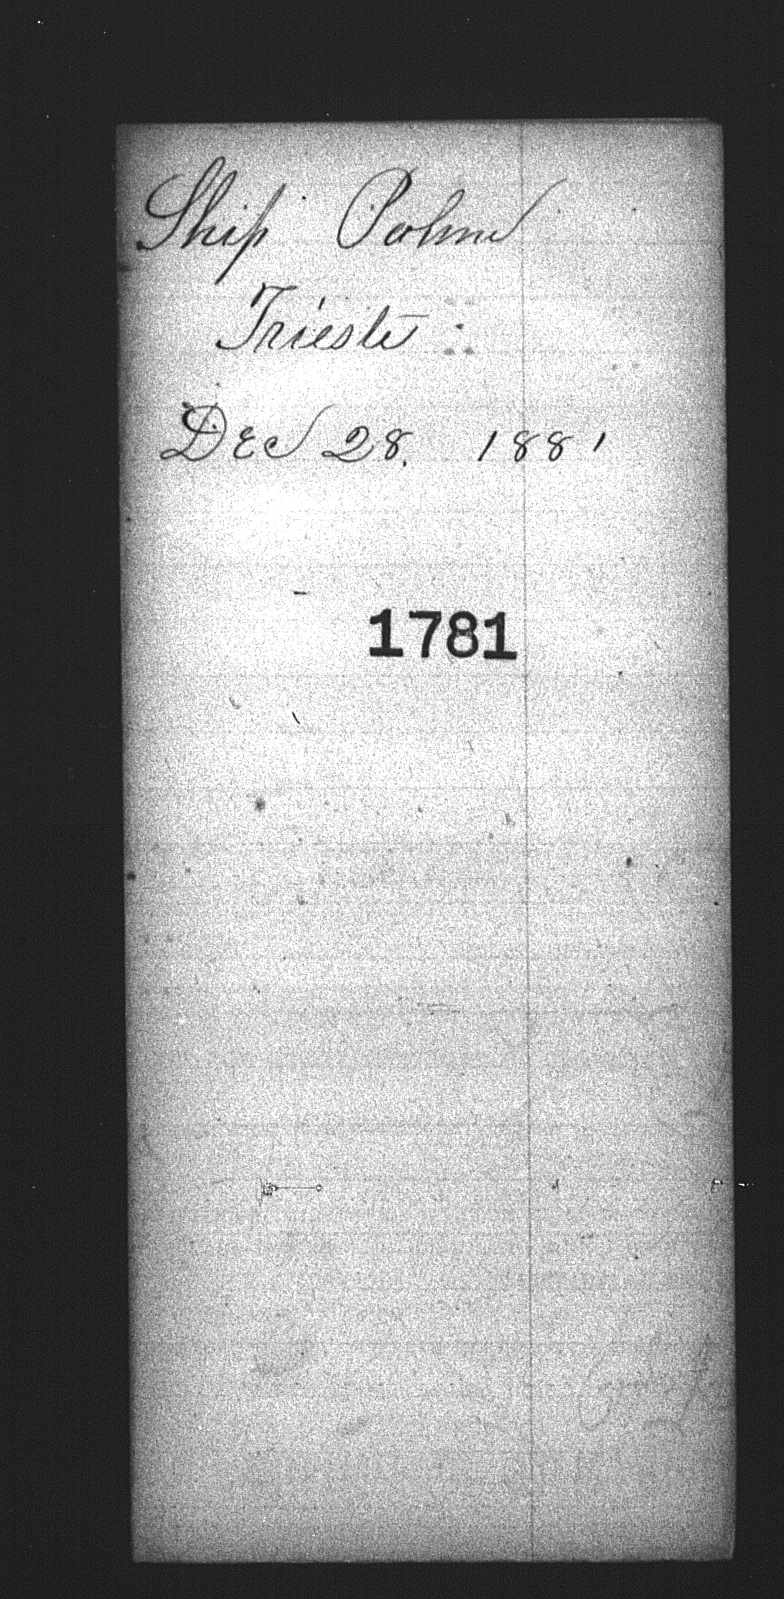 Ship
Trieste
Dec 28. 1881
1781